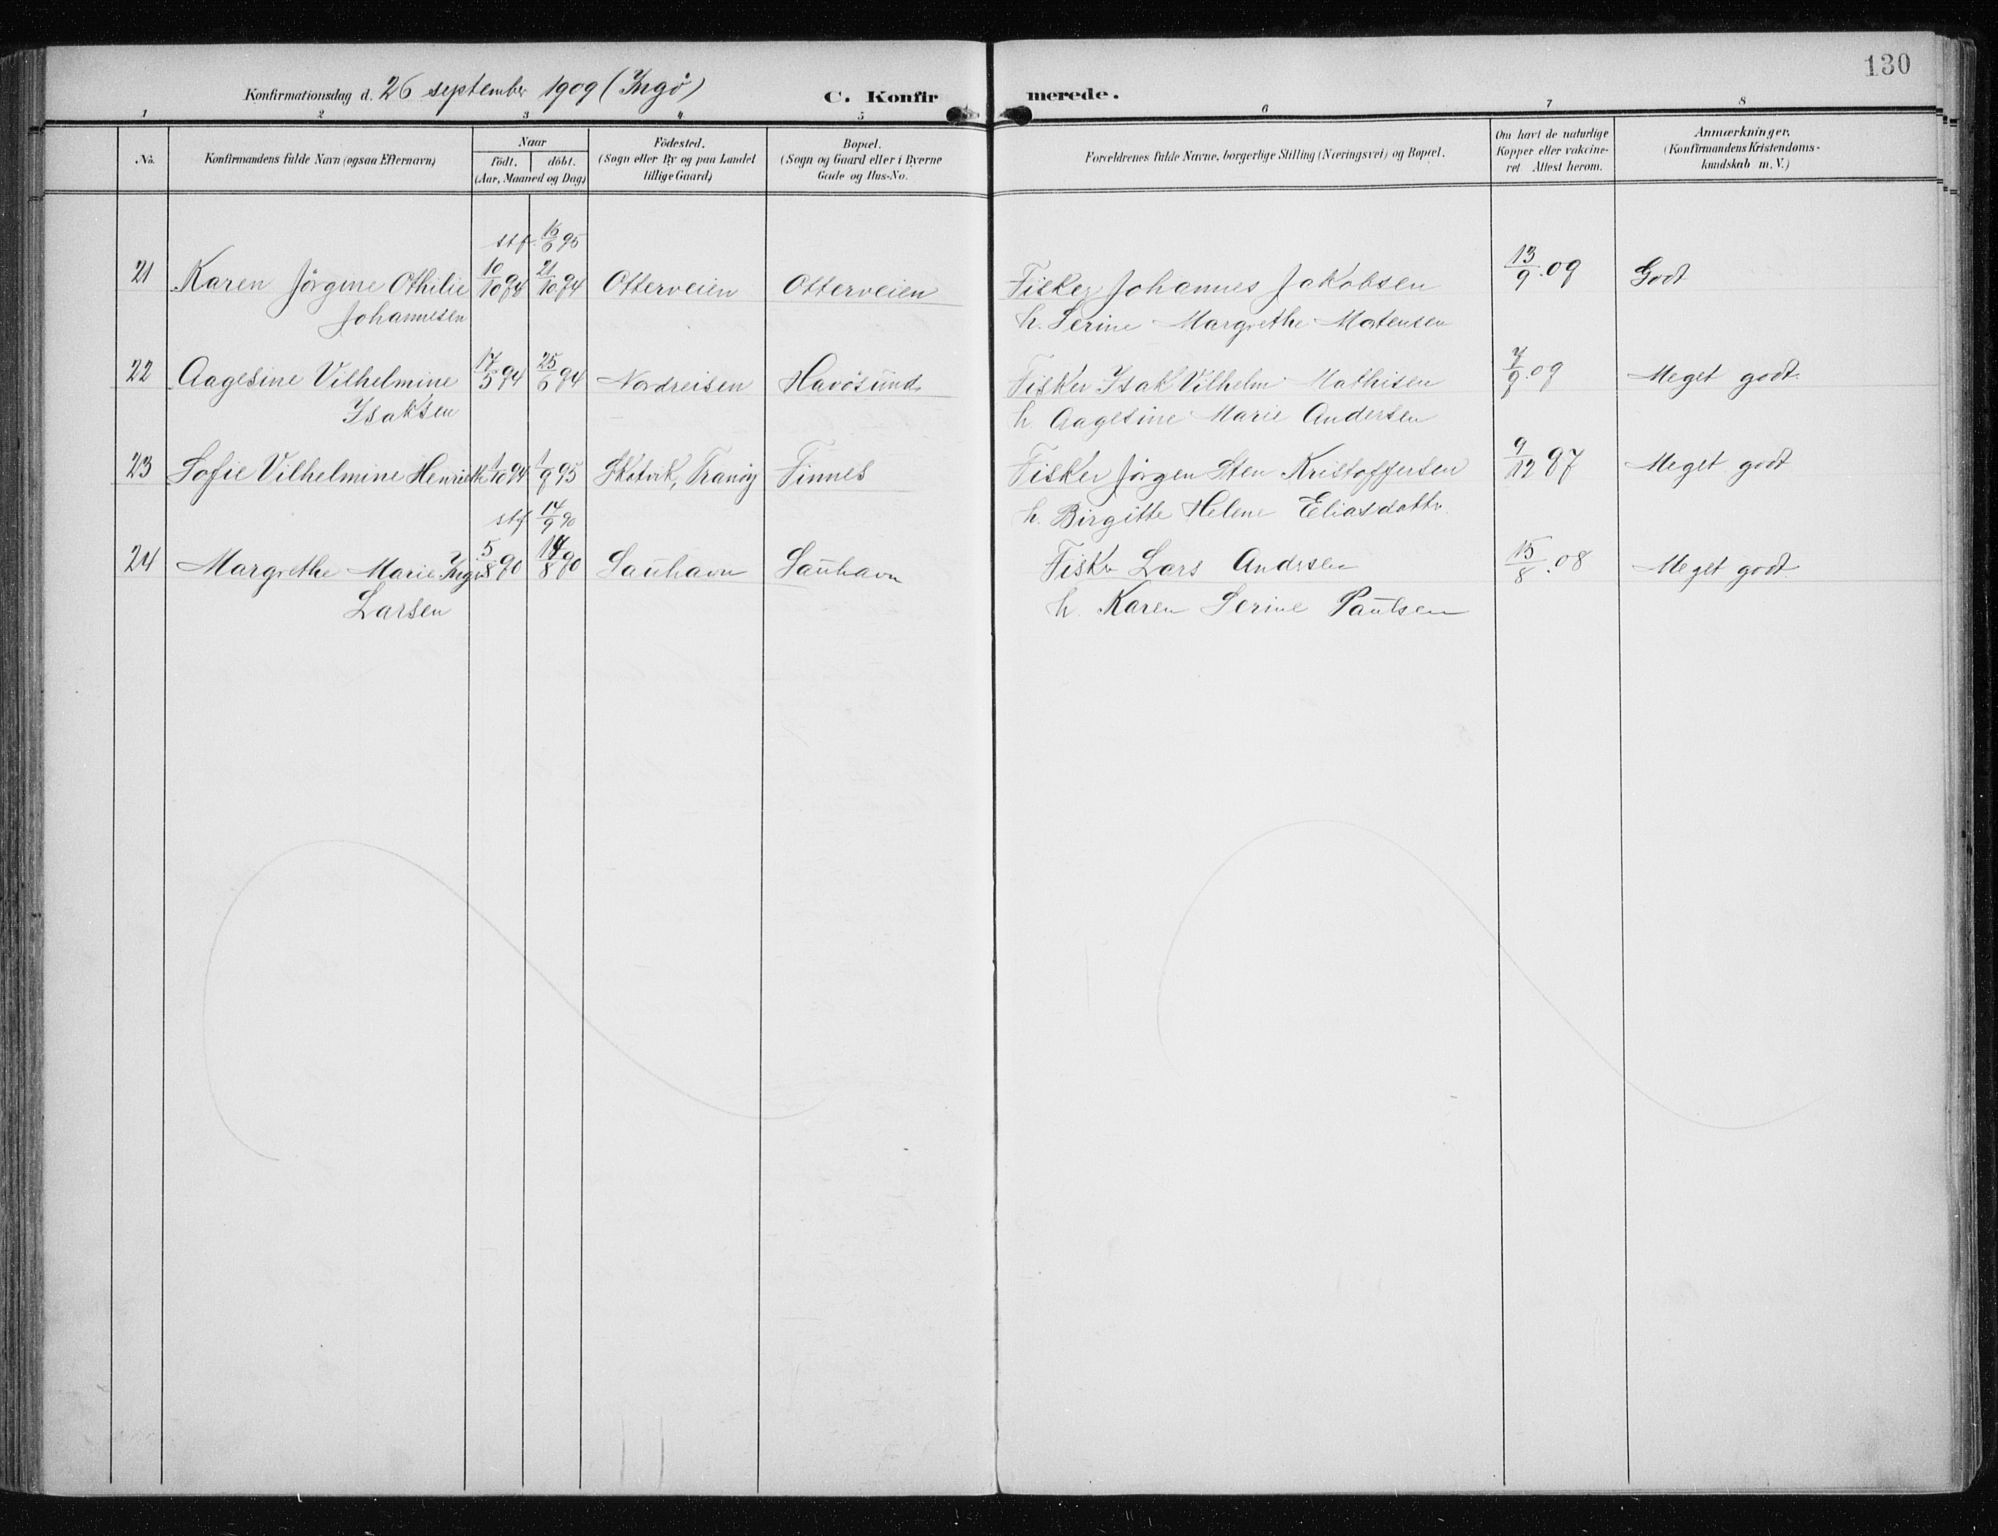 130
Konfirmationsdag d. 26 september 1909 (Ingö)
C. Konfirmerede.
1 2 3 4 5 6 7 8
No.
Konfirmandens fulde Navn (ogsaa Efternavn)
Naar
födt. döbt.
(Aar, Maaned og Dag)
Födested.
(Sogn eller By og paa Landet
tillige Gaard)
Bopæl.
(Sogn og Gaard eller i Byerne
Gade og Hus-No.
Forældrenes fulde Navne, borgerlige Stilling (Næringsvei) og Bopæl.
Om havt de naturlige
Kopper eller vakcine-
ret. Attest herom.
Anmærkninger.
(Konfirmandens Kristendoms-
kundskab m. V.)
stf. 16/6 95
21 Karen Jörgine Othilie 10/10 94 21/10 94 Otterveien Otterveien Fisker Johannes Jakobsen 13/9.09 Godt
Johannesen h. Serine Margrethe Mortensen
22 Aagesine Vilhelmine 17/5 94 25/6 94 Nordreisen Havösund Fisker Isak Vilhelm Mathisen 7/9.09 Meget godt.
Isaksen h Aagesine Marie Andersen
23 Sofie Vilhelmine 1/10 94 1/9 95 Tranöy Finnes Fisker Jörgen Sten Kristoffersen 9/12 87 Meget godt
h. Birgitte Helene Eliasdattr.
stf. 14/9 90
24 Margrethe Marie 5/8 90 14/8 90 Sauhavn Sauhavn Fisker Lars Andersen 15/8.08 Meget godt
Larsen h. Karen Serine Paulsen